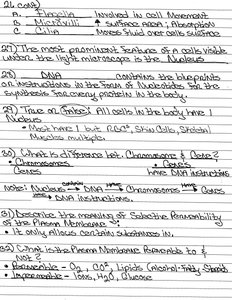 26 cont)
A. Flagella Involved in cell Movement
B. Microvilli ↑ Surface Area; Absorption
C. Cilia Moves fluid over cells surface
27) The most prominent feature of a cells visible
under the light microscope is the. Nucleus
28) DNA contains the blueprints
or instructions in the form of Nucleotides for the
synthesis for every protein in the body.
29) True or False: All cells in the body have 1
Nucleus
• Most have 1 but RBC, Skin Cells, Skeletal
Muscles multiple.
30) What is difference bet. Chromosome & Gene?
• Chromosomes • Genes
Genes have DNA instructions
Note: Nucleus → DNA → Chromosomes → Genes
→ DNA instructions.
31) Describe the meaning of Selective Permeability
of the Plasma Membrane:
• It only Allows certain substances in.
32) What is the Plasma Membrane Permeable to &
Not?
• Permeable - O2, CO2, Lipids (Alcohol-Fatty, Steroids
• Impermeable - Ions, H2O, Glucose